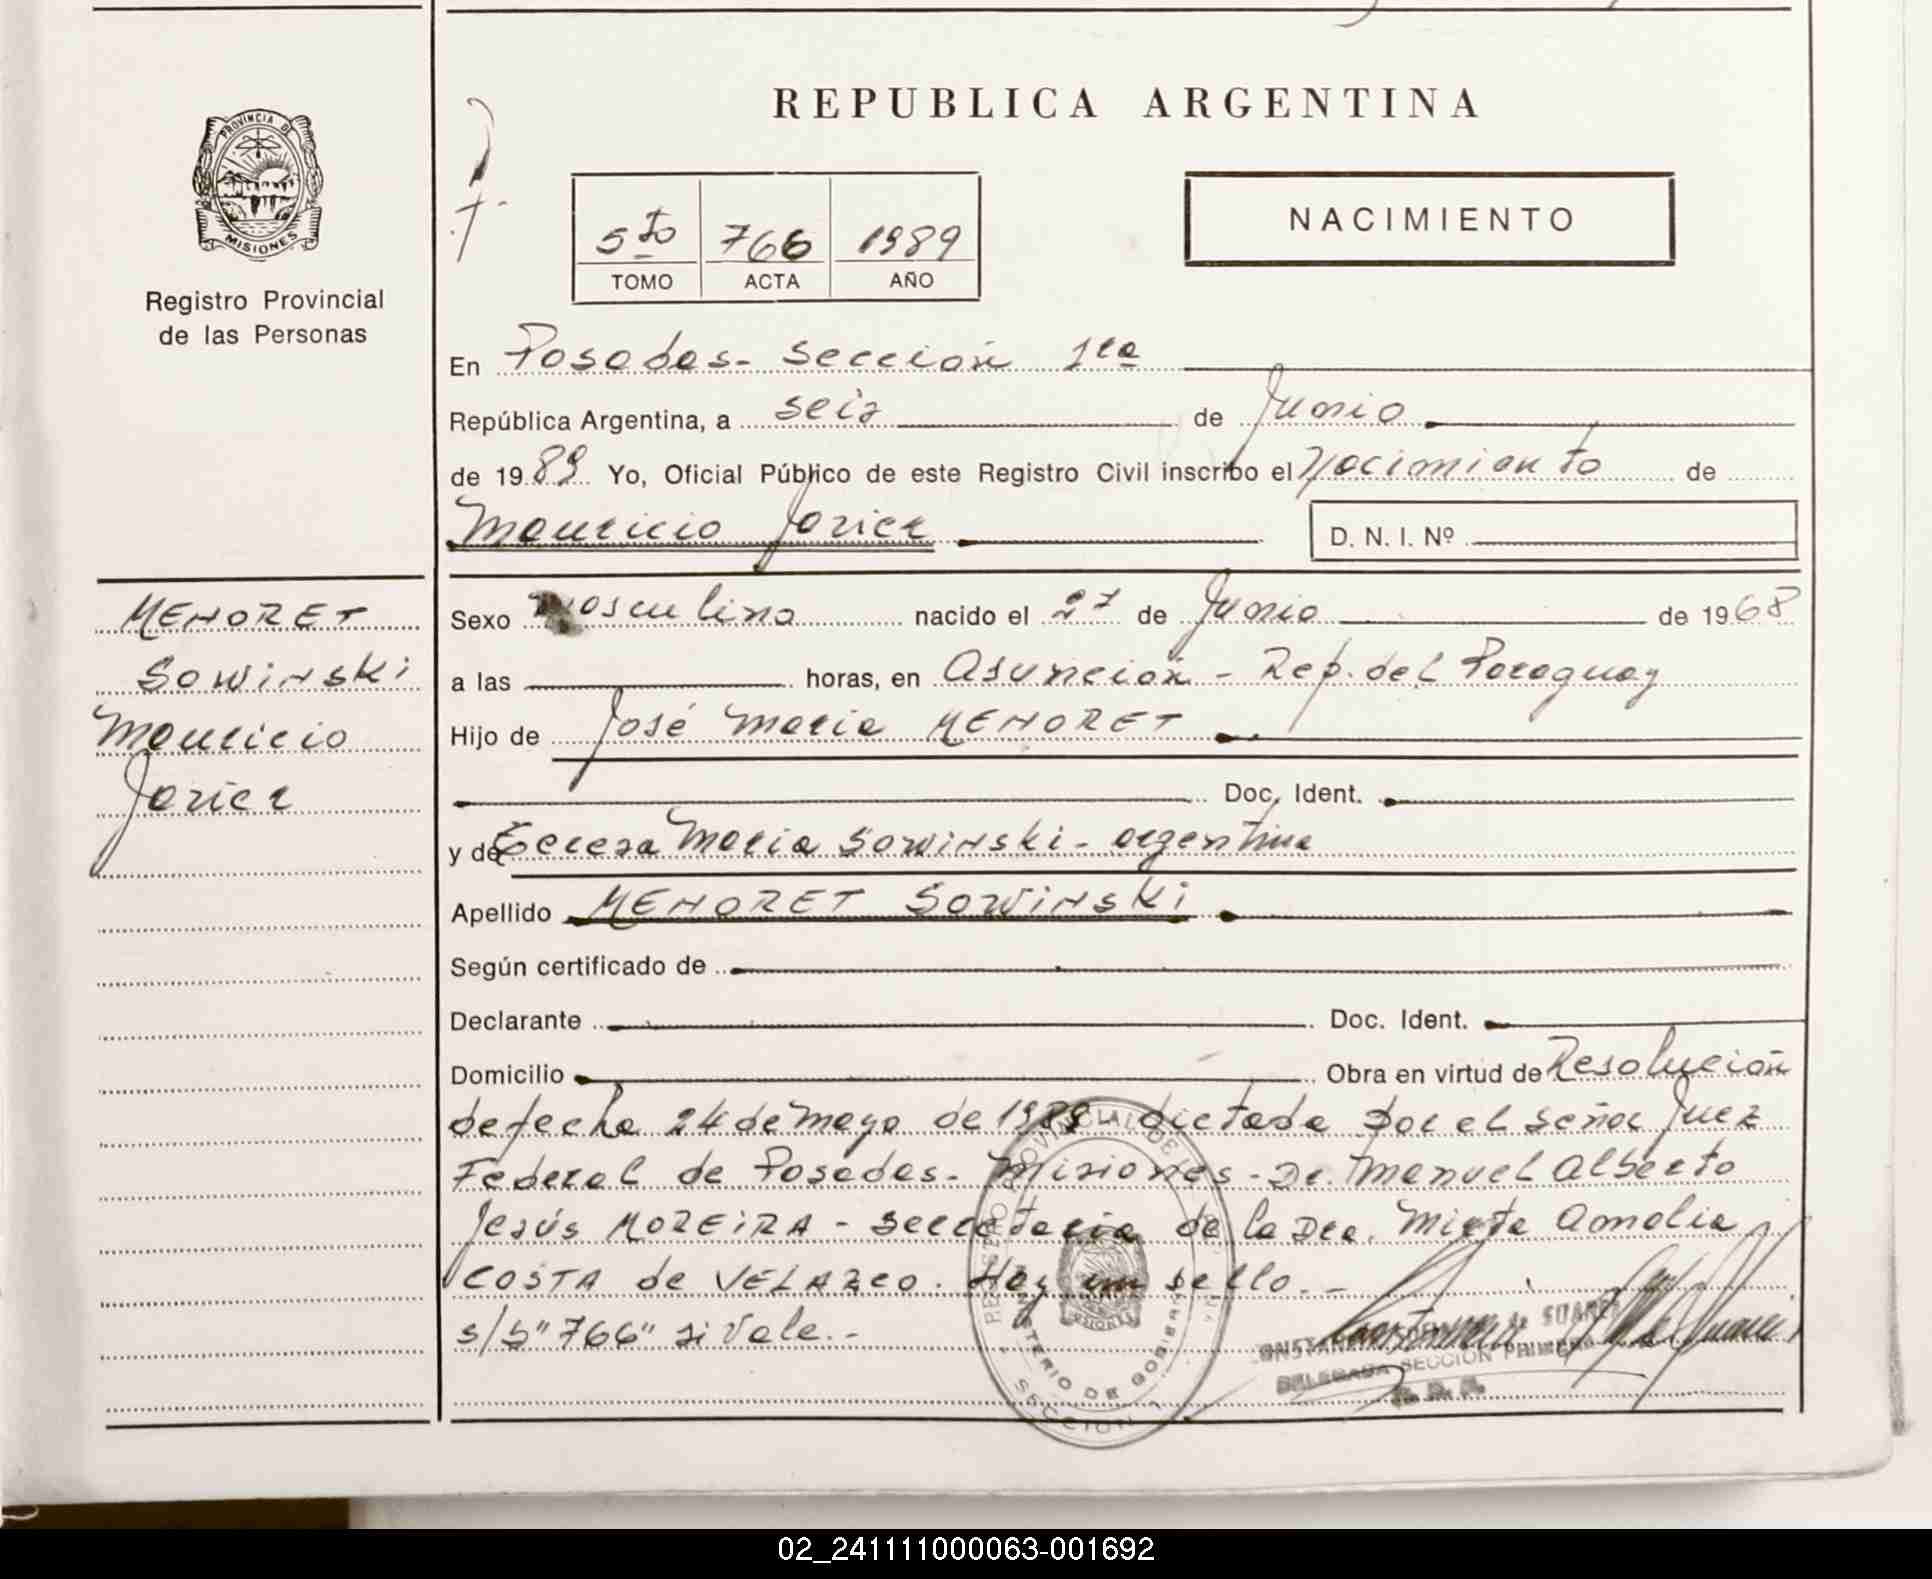 REPUBLICA ARGENTINA
PROVINCIA DE
MISIONES
Registro Provincial
de las Personas
5to 766 1989
TOMO ACTA AÑO
NACIMIENTO
En Posadas- Sección 1ra
República Argentina, a seis de Junio
de 1989 Yo, Oficial Público de este Registro Civil inscribo el Nacimiento de
Mauricio Javier
D. N. I. Nº
MENORET
Sowinski
Mauricio
Javier
Sexo Masculino nacido el 27 de Junio de 1968
a las horas, en Asunción - Rep. del Paraguay
Hijo de José Maria MENORET
Doc. Ident.
y de Teresa Maria Sowinski - argentina
Apellido MENORET SOWINSKI
Según certificado de
Declarante Doc. Ident.
Domicilio Obra en virtud de Resolución
de fecha 24 de Mayo de 1989 dictada por el señor Juez
Federal de Posadas- Misiones - Dr. Manuel Alberto
Jesús MOREIRA - secretaria de la Dra. Mirta Amalia
COSTA de VELAZCO. Hay un sello. -
s/b "766" si Vale. -
REGISTRO PROVINCIAL DE
MINISTERIO DE GOBIERNO
SECCION 1
de SUAREZ
DELEGADA SECCION PRIMERA
02_241111000063-001692